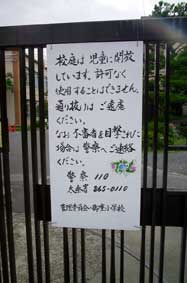 校庭は 児童に開放
しています。許可なく
使用することはできません。
通り抜けは ご遠慮
ください。
なお 不審者を目撃された
場合は 警察へ ご連絡
ください。
警察 110
太秦署 865-0110
管理委員会・御室小学校